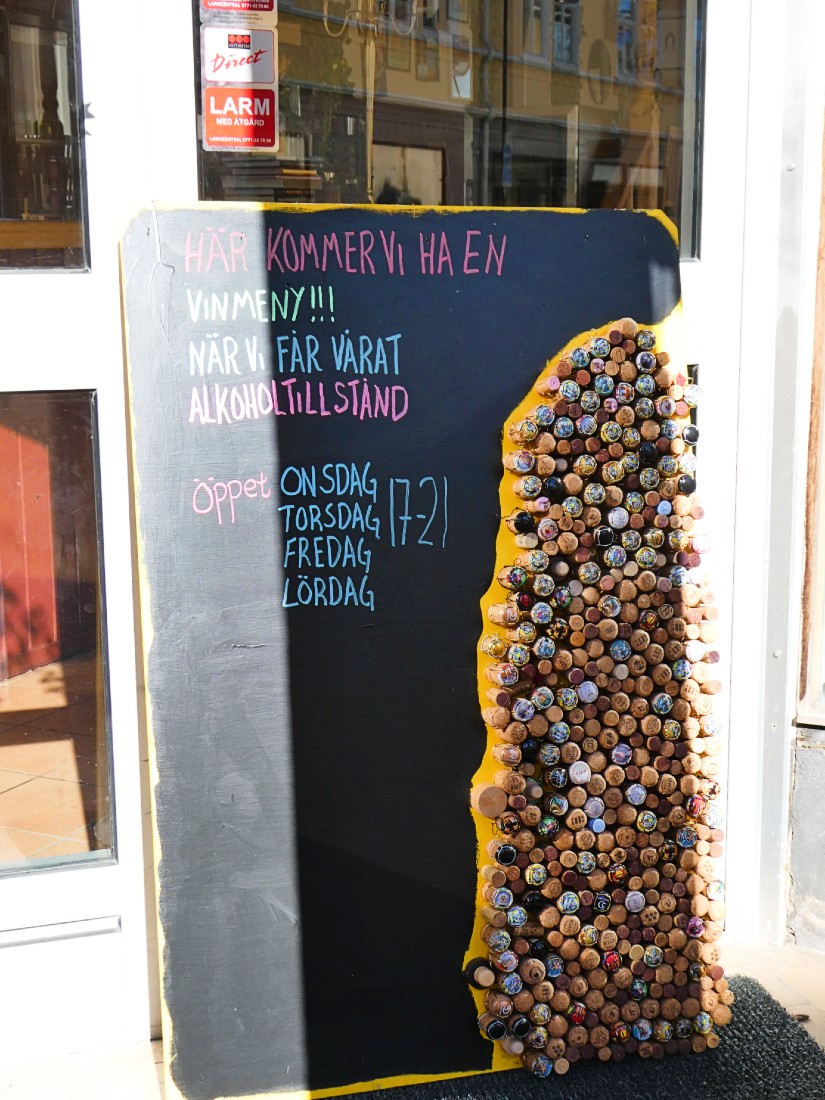 LARMCENTRAL 0771-
Direct
LARM
MED ÅTGÄRD
HÄR KOMMER Vi HA EN
ViNMENY!!!
NÄR Vi FÅR VÅRAT
ALKOHOLTiLLSTÅND
öppet ONSDAG 17-21
TORSDAG
FREDAG
LÖRDAG